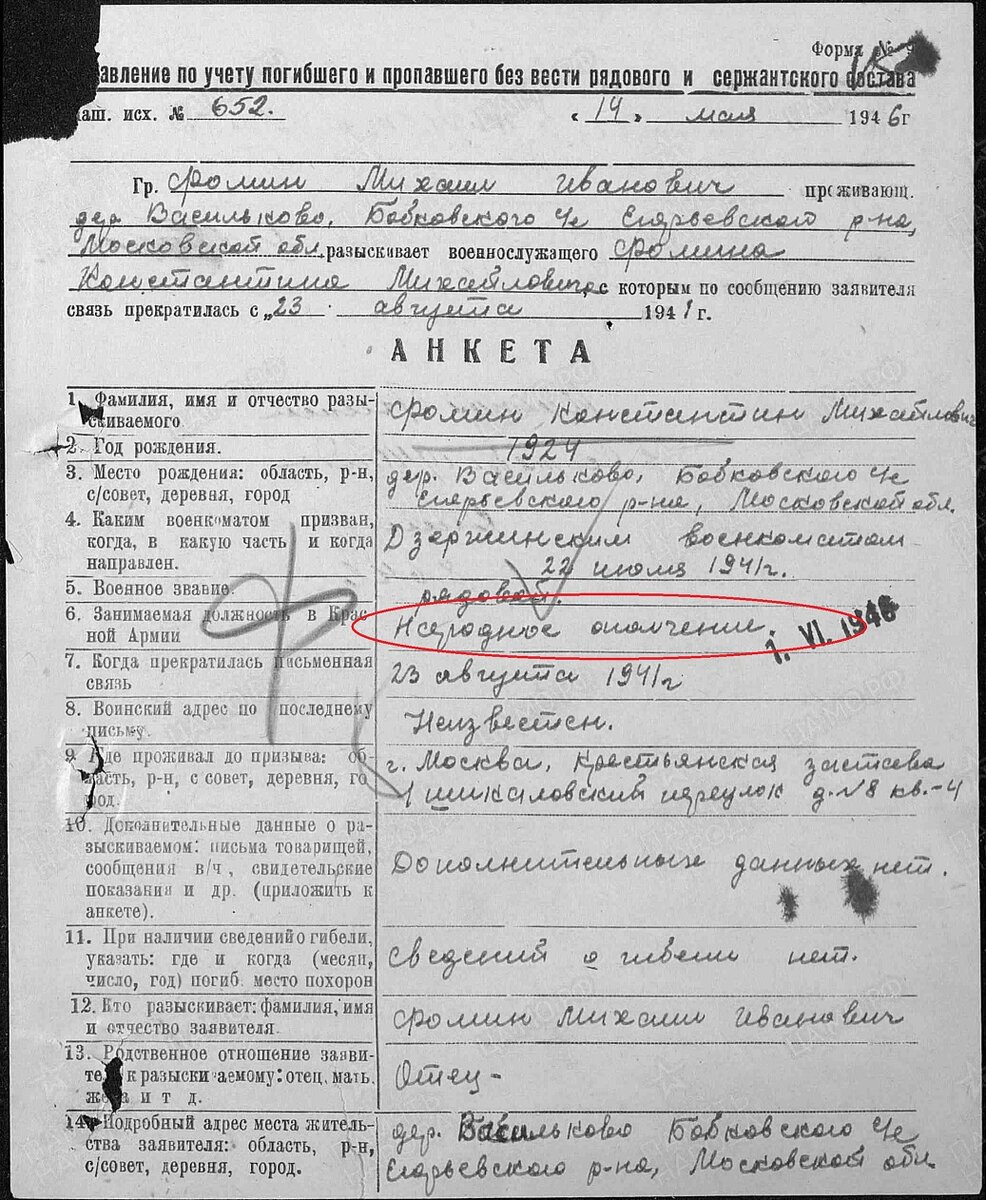 Форма № 9
авление по учету погибшего и пропавшего без вести рядового и сержантского состава
наш. исх. № 652. « 14 » мая 1946г
Гр. Фомин Михаил Иванович проживающ.
дер. Васильково, Бобковского с/с Егорьевского р-на,
Московской обл. разыскивает военнослужащего Фомина
Константина Михайловича, с которым по сообщению заявителя
связь прекратилась с „23 августа 1941 г.
АНКЕТА
1. Фамилия, имя и отчество разы-
скиваемого.
Фомин Константин Михайлович
2. Год рождения.
1924
3. Место рождения: область, р-н,
с/совет, деревня, город
дер. Васильково, Бобковского с/с
Егорьевского р-на, Московской обл.
4. Каким военкоматом призван,
когда, в какую часть и когда
направлен.
Дзержинским военкоматом
22 июля 1941г.
5. Военное звание.
рядовой.
6. Занимаемая должность в Крас
ной Армии
Народное ополчение
1. VI. 1946
7. Когда прекратилась письменная
связь
23 августа 1941г
8. Воинский адрес по последнему
письму.
Неизвестен.
9. Где проживал до призыва: об-
ласть, р-н, с совет, деревня, го
род.
г. Москва, Крестьянская застава
1 шикаловский переулок д. №8 кв.-4
10. Дополнительные данные о ра-
зыскиваемом: письма товарищей,
сообщения в/ч, свидетельские
показания и др. (приложить к
анкете).
Дополнительных данных нет.
11. При наличии сведений о гибели,
указать: где и когда (месяц,
число, год) погиб. место похорон
Сведений о гибели нет.
12. Кто разыскивает: фамилия, имя
и отчество заявителя.
Фомин Михаил Иванович
13. Родственное отношение заяви-
те к разыскиваемому: отец, мать,
жена и т д.
Отец -
14. Подробный адрес места житель-
ства заявителя: область, р-н,
с/совет, деревня, город.
дер. Васильково Бобковского с/с
Егорьевского р-на, Московской обл.